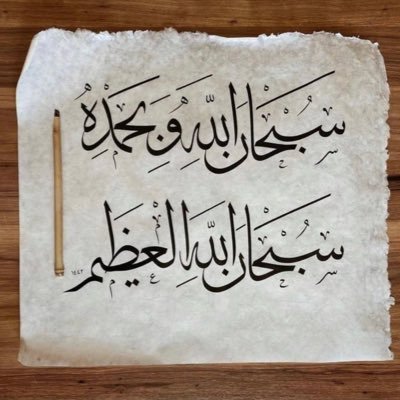 سُبْحَانَ اللّٰهِ وَبِحَمْدِهِ
سُبْحَانَ اللّٰهِ الْعَظِيمِ
١٤٤٢